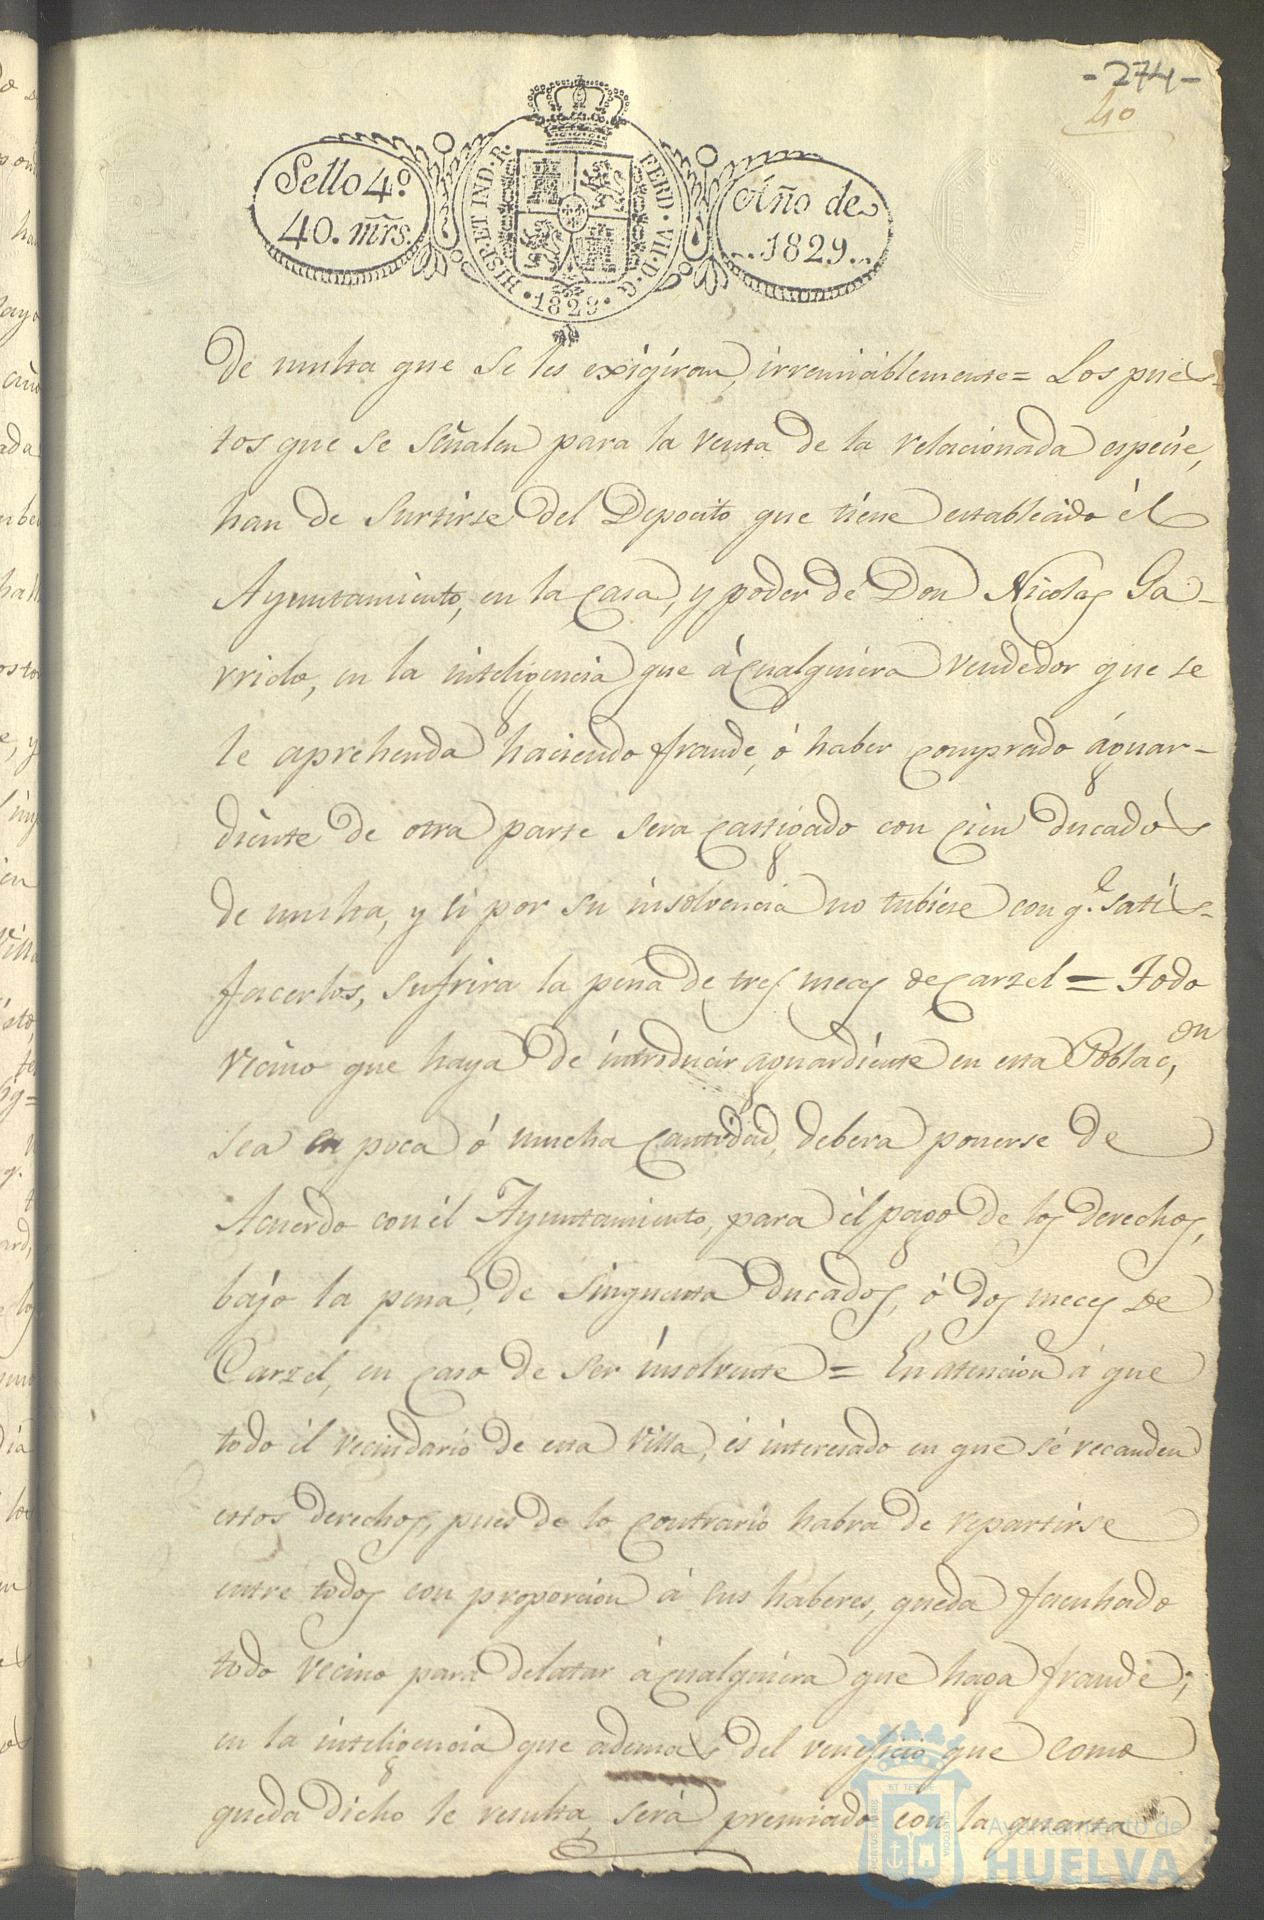 -274-
40
Sello 4º
40. mrs.
HISP. ET IND. R.
FERD. VII. D. G.
1829
Año de
1829
De multa que se les exigiran, irremiciblemente = Los pues-
tos que se señalen para la venta de la relacionada especie,
han de surtirse del Deposito que tiene establecido él
Ayuntamiento, en la Casa, y poder de Don Nicolas Ga-
rrido, en la inteligencia que á cualquiera vendedor que se
le aprehenda haciendo fraude, ó haber comprado águar-
diente de otra parte sera castigado con cien ducados
de multa, y si por su insolvencia no tubiese con q.e satis-
facerlos, sufrira la pena de tres meces de Carzel = Todo
vecino que haya de introducir aguardiente en esta Poblac.on,
sea en poca ó mucha Cantidad, debera ponerse de
Acuerdo con él Ayuntamiento, para él pago de los derechos,
bájo la pena, de Sinquenta Ducados, ó dos meces de
Carzel, en caso de ser insolvente = En atencion á que
todo él vecindario de esta Villa, és interesado en que sé recauden
estos derechos, pues de lo contrario habra de repartirse
entre todos con proporcion á sus haberes, queda facultado
todo vecino para delatar á cualquiera que haga fraude;
en la inteligencia que ademas del veneficio que como
queda dicho le resulta, será premiado con la quarta
PORTUS MARIS ET TERRAE CUSTODIA
Ayuntamiento de
HUELVA